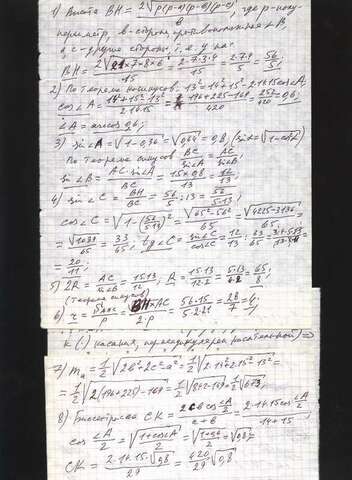 1) Высота BH = 2√p(p-a)(p-b)(p-c) / b, где p-полу-
периметр, b-сторона противоположная ∠B,
a, c - другие стороны, т.е. у нас.
BH = 2√21×7×8×6 / 15 = 2·7·3·4 / 15 = 2·7·4 / 5 = 56/5;
2) По теореме косинусов. 13²=14²+15²-2·14·15cos∠A;
cos∠A = 14²+15²-13² / 2·14·15 = 196+225-169 / 420 = 252/420 = 0,6;
∠A = arccos 0,6;
3) sin∠A = √1-0,36 = √0,64 = 0,8. (sinα=√1-cos²α)
По теореме синусов BC/sin∠A = AC/sin∠B;
sin∠B = AC·sin∠A / BC = 15×0,8 / 13 = 12/13;
4) sin∠C = BH/BC = 56/5 : 13 = 56/5·13;
cos∠C = √1-(56/5·13)² = √65²-56² / 65 = √4225-3136 / 65 =
= √1089 / 65 = 33/65; tg∠C = sin∠C / cos∠C =
5) 2R = AC/sin∠B = 15·13/12; R = 15·13/12·2 = 5·13/4·2 = 65/8;
(теорема синусов)
6) r = = BH×AC / 2·p = 56·15 / 5·2·21 = 28/7 = 4;
K (т. касания, перпендикулярен касательной) =>
7) mₐ = 1/2 √2b²+2c²-a² = 1/2 √2·14²+2·15²-13² =
= 1/2 √2(196+225)-169 = 1/2 √842-169 = 1/2 √673;
8) Биссектриса CK = 2cb cos∠A/2 / c+b = 2·14·15cos∠A/2 / 14+15;
cos ∠A/2 = √1+cosA / 2 = √1+0,6 / 2 = √0,8;
CK = 2·14·15·√0,8 / 29 = 420/29 √0,8